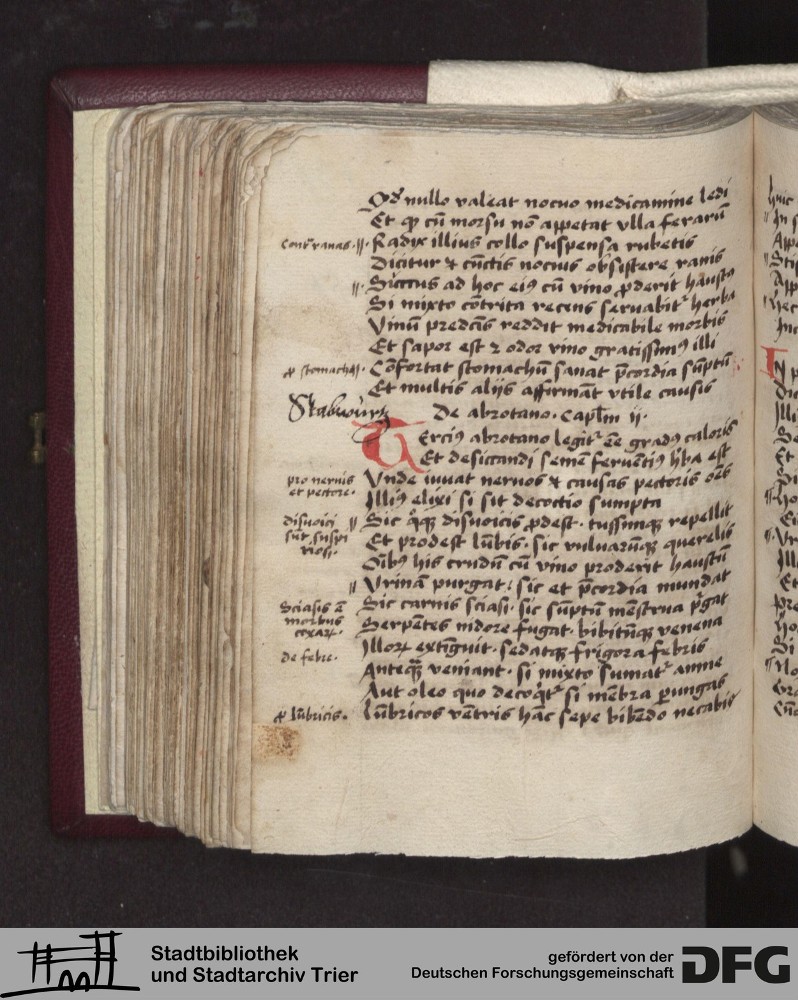 Qd nullo valeat nocuo medicamine ledi
Et qz cū morsu nō appetat vlla ferarū
Cont ranas Radix illius collo suspensa rubetis
Dicitur & cūctis nocuis obsistere ranis
Succus ad hoc eiꝰ cū vino ꝓderit haustꝰ
Si mixto cōtrita recens seruabitʳ herba
Vinū predcīs reddit medicabile morbis
Et sapor est & odor vino gratissimꝰ illi
ꝓ stomacho Cōfortat stomachū sanat p̄cordia sūptū
Et multis alijs affirmāt vtile causis
Stabwurtz De abrotano. Capl̄m ij.
Terciꝰ abrotano legitʳ eē gradꝰ caloris
Et desiccandi semē feruētiꝰ h̓ba est
pro neruis et pectore. Vnde iuuat neruos & causas pectoris oēs
Illiꝰ elixi si sit decoctio sumpta
disnoici sūt suspiriosi. Sic q̊qz disnoicis ꝓdest. tussimqz repellit
Et prodest lūbis. sic vuluarūqz querelis
Oībꝰ his crudū cū vino proderit haustū
Vrinā purgat: sic et p̄cordia mundat
Sciasis ē morbus coxaꝝ. Sic carnis sciasi. sic sūptū mēstrua p̓gat
Serpētes nidore fugat. bibitūqz venena
Illoꝝ extīguit. sedatqz frigora febris
de febre. Anteqz̄ veniant. si mixto sumatʳ amne
Aut oleo quo decoq̓tʳ si mēbra ꝑungas
ꝓ lūbricis. Lūbricos vētris hāc sepe bibēdo necabis
Stadtbibliothek
und Stadtarchiv Trier
gefördert von der
Deutschen Forschungsgemeinschaft
DFG